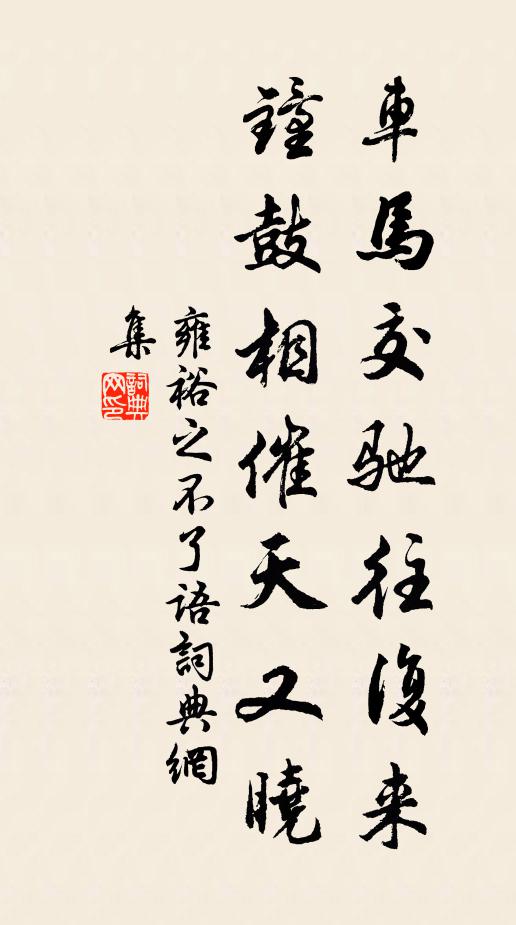 車馬交馳往復来
鐘鼓相催天又曉
雍裕之不了語詞典網
集
詞典
网印